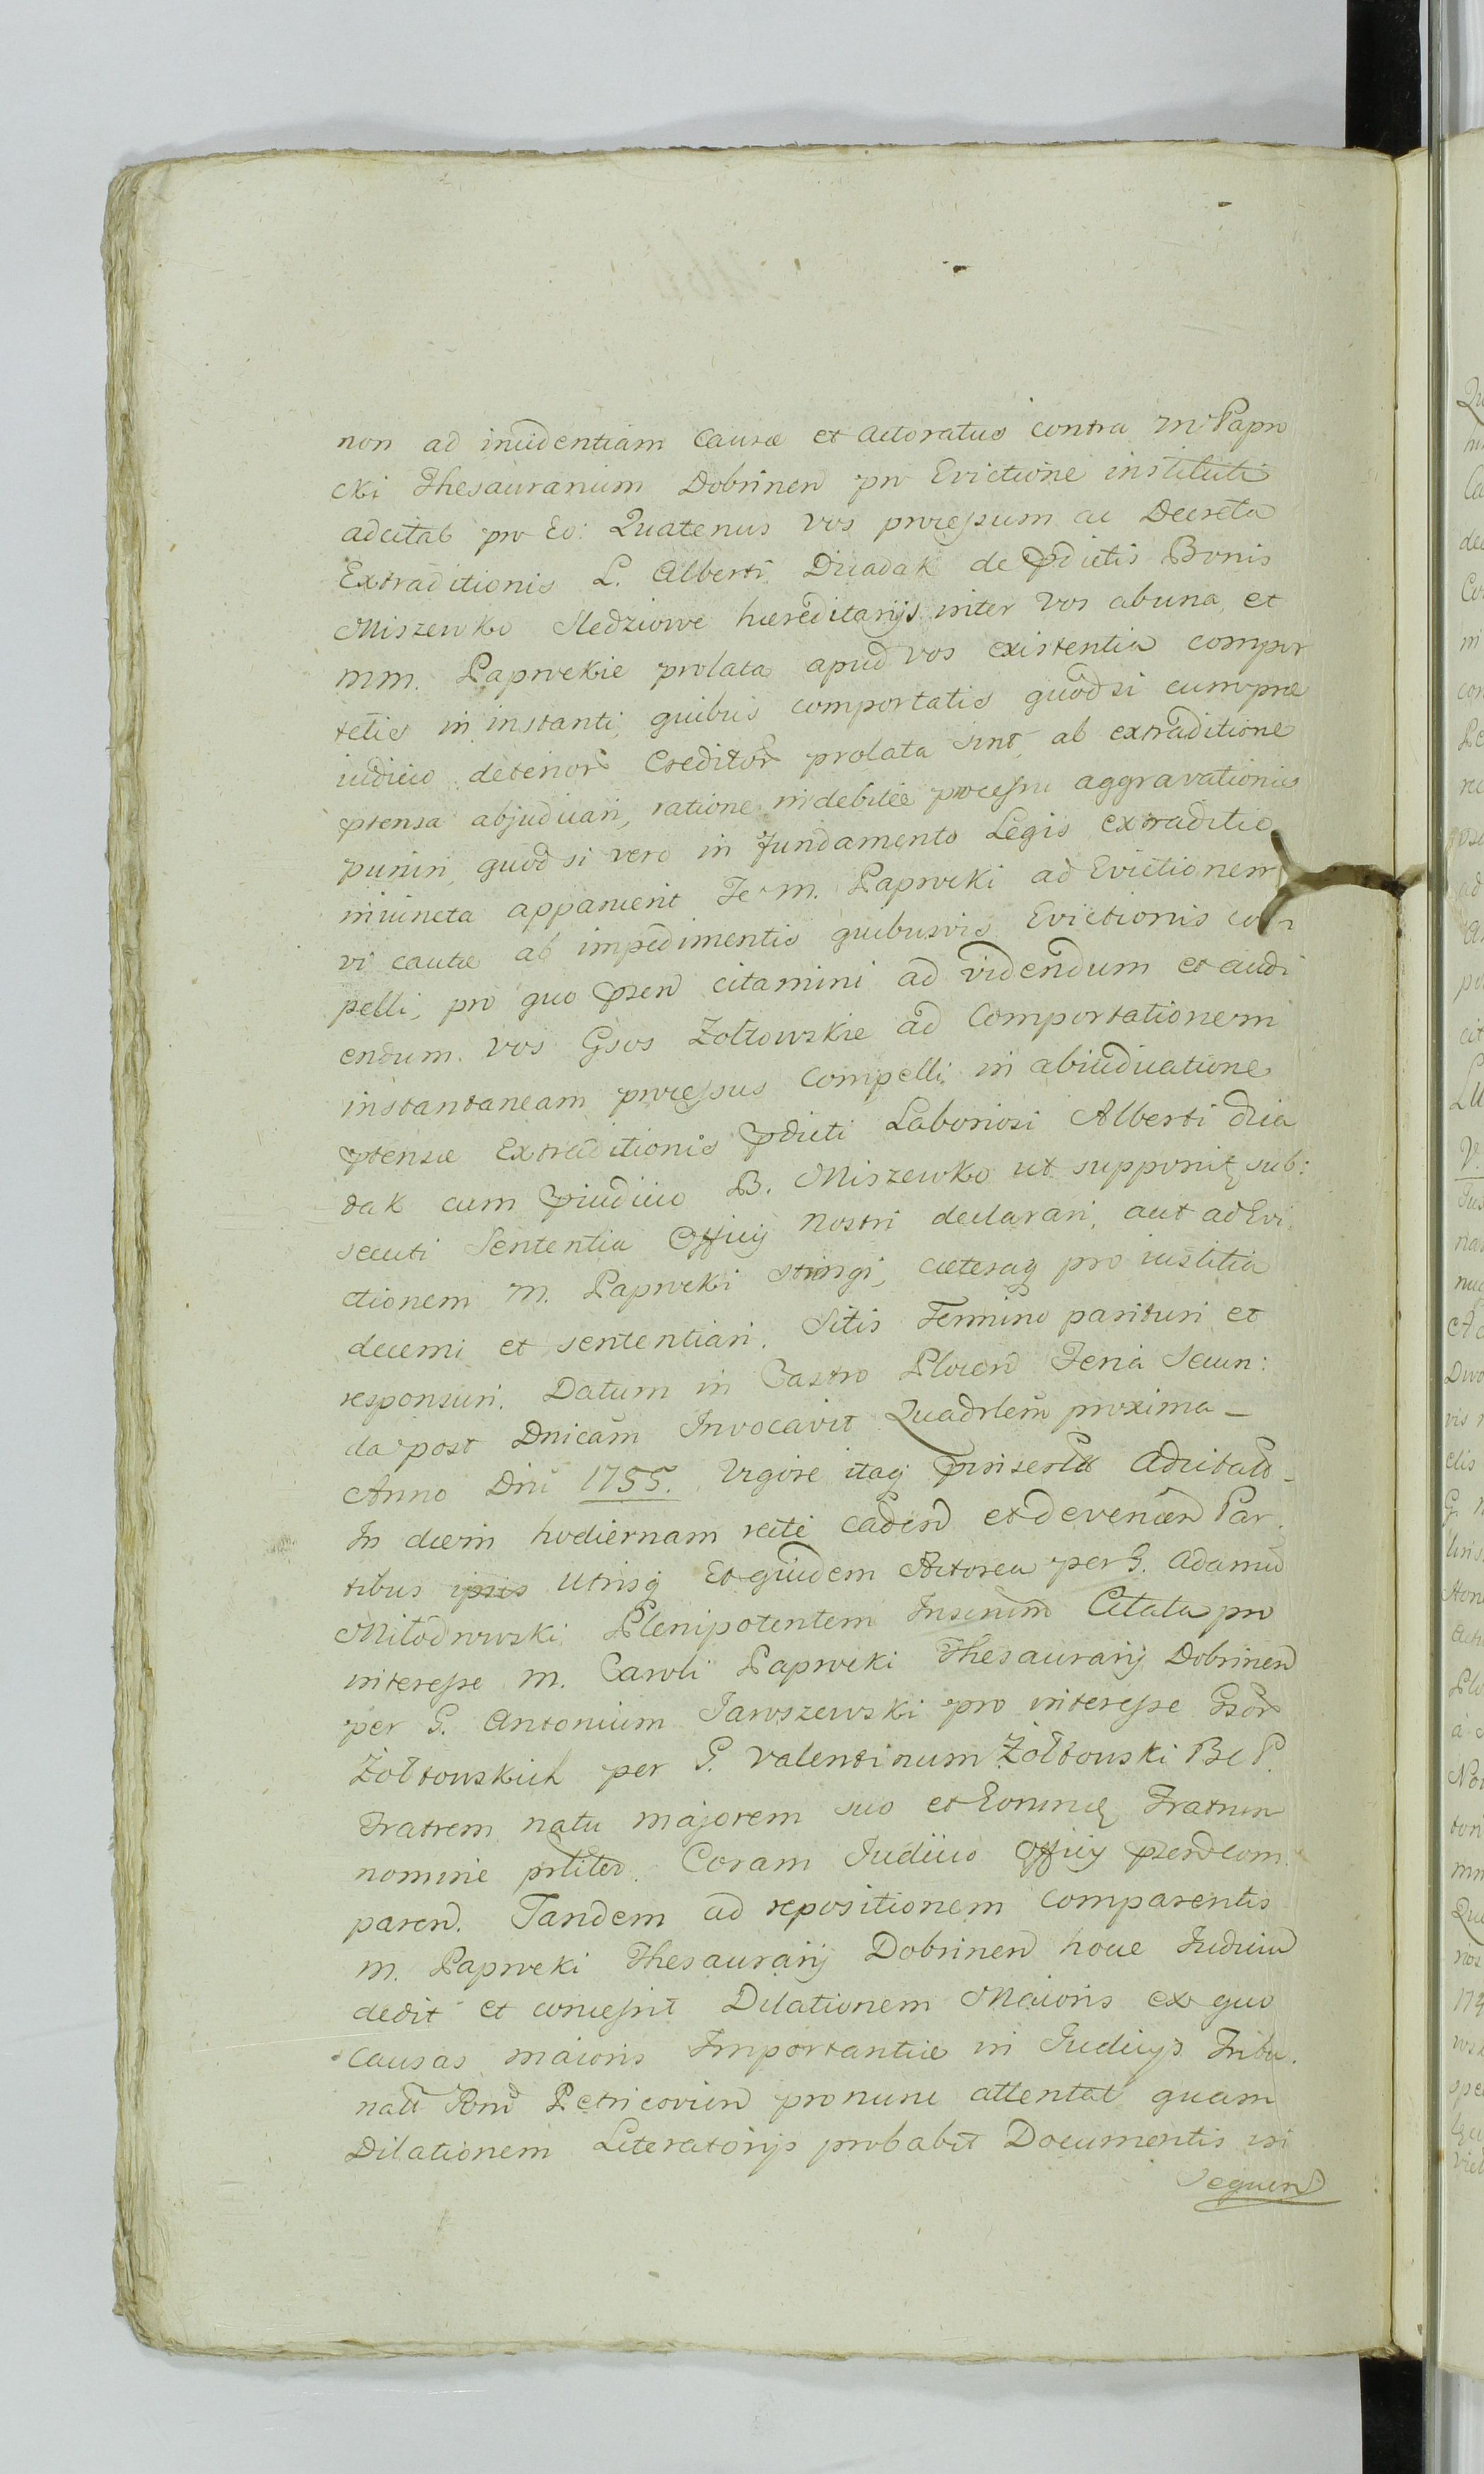 non ad incidentiam Causæ et Actoratus contra M. Papro
cki Thesaurarium Dobrinen pro Evictione instituti
adcitat pro Eo: Quatenus vos processum ac Decreta
Extraditionis L. Alberti Dziadak de pdictis Bonis
Miszewko Sledziowe hæreditarijs inter vos ab una, et
MM. Paprockie prolata apud vos existentia compor
tetis in instanti, quibus comportatis quod si cum præ
iudicio deterior Creditor prolata sint, ab extraditione
ptensa abjudicari, ratione indebitæ processu aggravationis
puniri, quod si vero in fundamento Legis extraditio
iniuncta apparuerit Te M. Paprocki ad Evictionem
vi cautæ ab impedimentis quibusvis Evictionis com
pelli, pro quo psen citamini ad videndum et audi
endum. vos Gsos Zołtowskie ad Comportationem
instantaneam processus Compelli, in abiudicatione
ptensæ Extraditionis pdicti Laboriosi Alberti Dzia
dak cum piudicio B. Miszewko ut supponit sub:
secuti Sententia Officij Nostri declarari, aut ad Evi
ctionem M. Paprocki stringi, cæteraq pro iustitia
decerni et sententiari. Sitis Termino parituri et
responsuri. Datum in Castro Plocen Feria Secun:
da post Dnicam Invocavit Quadrlem proxima
Anno Dni 1755. Vigore itaq pinserta Adcitatō
In diem hodiernam rectè caden et devenien Par
tibus ipsis Utrisq Et quidem Actorea per G. Adamū
Miłodrowski Plenipotentem Inserum Citata pro
interesse M. Caroli Paprocki Thesaurarij Dobrinen
per G. Antonium Jaroszewski pro interesse Gsor
Żołtowskich per G. Valentinum Żołtowski B C P.
Fratrem natu majorem suo et Eorumq Fratrum
nomine prliter. Coram Judicio Officij psen com
paren. Tandem ad repositionem Comparentis
M. Paprocki Thesaurarij Dobrinen hocce Judiciū
dedit et concessit Dilationem Maioris ex quo
Causas maioris Importantiæ in Judicijs Tribu
nalt Rni Petricovien pro nunc attentat quam
Dilationem Literatorijs probabit Documentis isi
Sequen